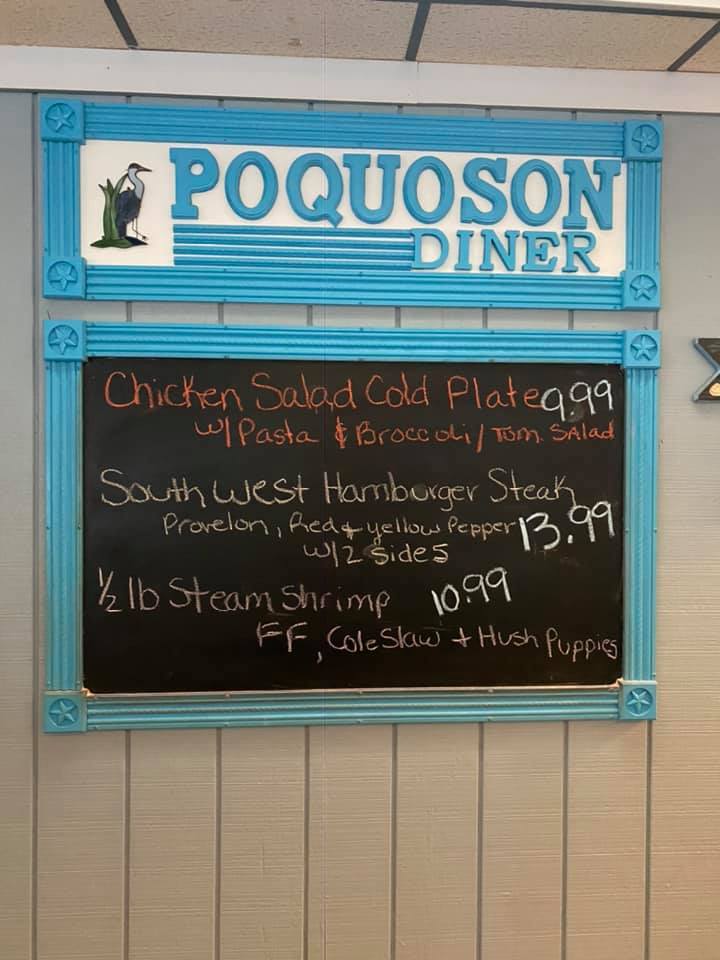 POQUOSON
DINER
Chicken Salad Cold Plate 9.99
w/ Pasta & Broccoli / Tom. Salad
South West Hamburger Steak
Provelon, Red & yellow Pepper 13.99
w/ 2 sides
½ lb Steam Shrimp 10.99
FF, Cole Slaw + Hush Puppies